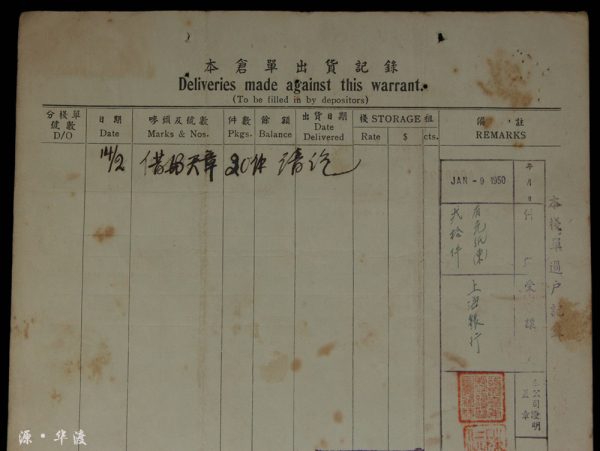 本倉單出貨記錄
Deliveries made against this warrant.
(To be filled in by depositors)
分棧單號數 D/O
日期 Date
嘜頭及號數 Marks & Nos.
件數 Pkgs.
餘額 Balance
出貨日期 Date Delivered
棧 STORAGE 租
Rate
$
cts.
備註 REMARKS
14/2
20件
清訖
本棧單過戶記錄
年 月 日
JAN -9 1950
貳拾件
上海銀行
公司證明
蓋章
源·华渡